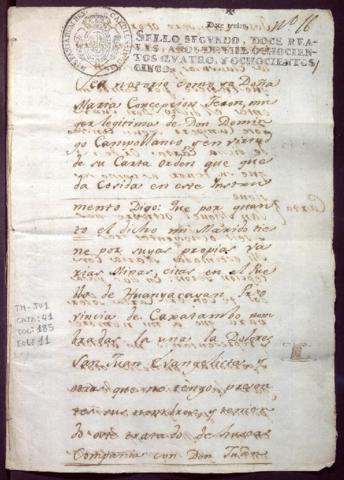 Doce reales.
Nº 16
SELLO SEGVNDO, DOCE REA-
LES, AÑOS DE MIL OCHOCIEN-
TOS QVATRO, Y OCHOCIENTOS
CINCO.
como Doña
Maria Concepcion Teron, mu
ger legitima de Don Domin
go Campoblanco, y en virtud
de su Carta Orden que que
da Cosida en este Instru
mento Digo: Que por quan
to el dicho mi Marido tie
ne por suyas propias va
rias Minas, citas en el Pue
blo de Huanyacayan Pro
vincia de Caxatambo nom
bradas la una la Dolores
San Juan Evangelista, y
otra que no tengo presen
tes sus nombres, y tenien
do este tratado de hacer
Compañia con Don Juan
TM-JV1
CAJA: 41
DOC: 185
FOL: 11